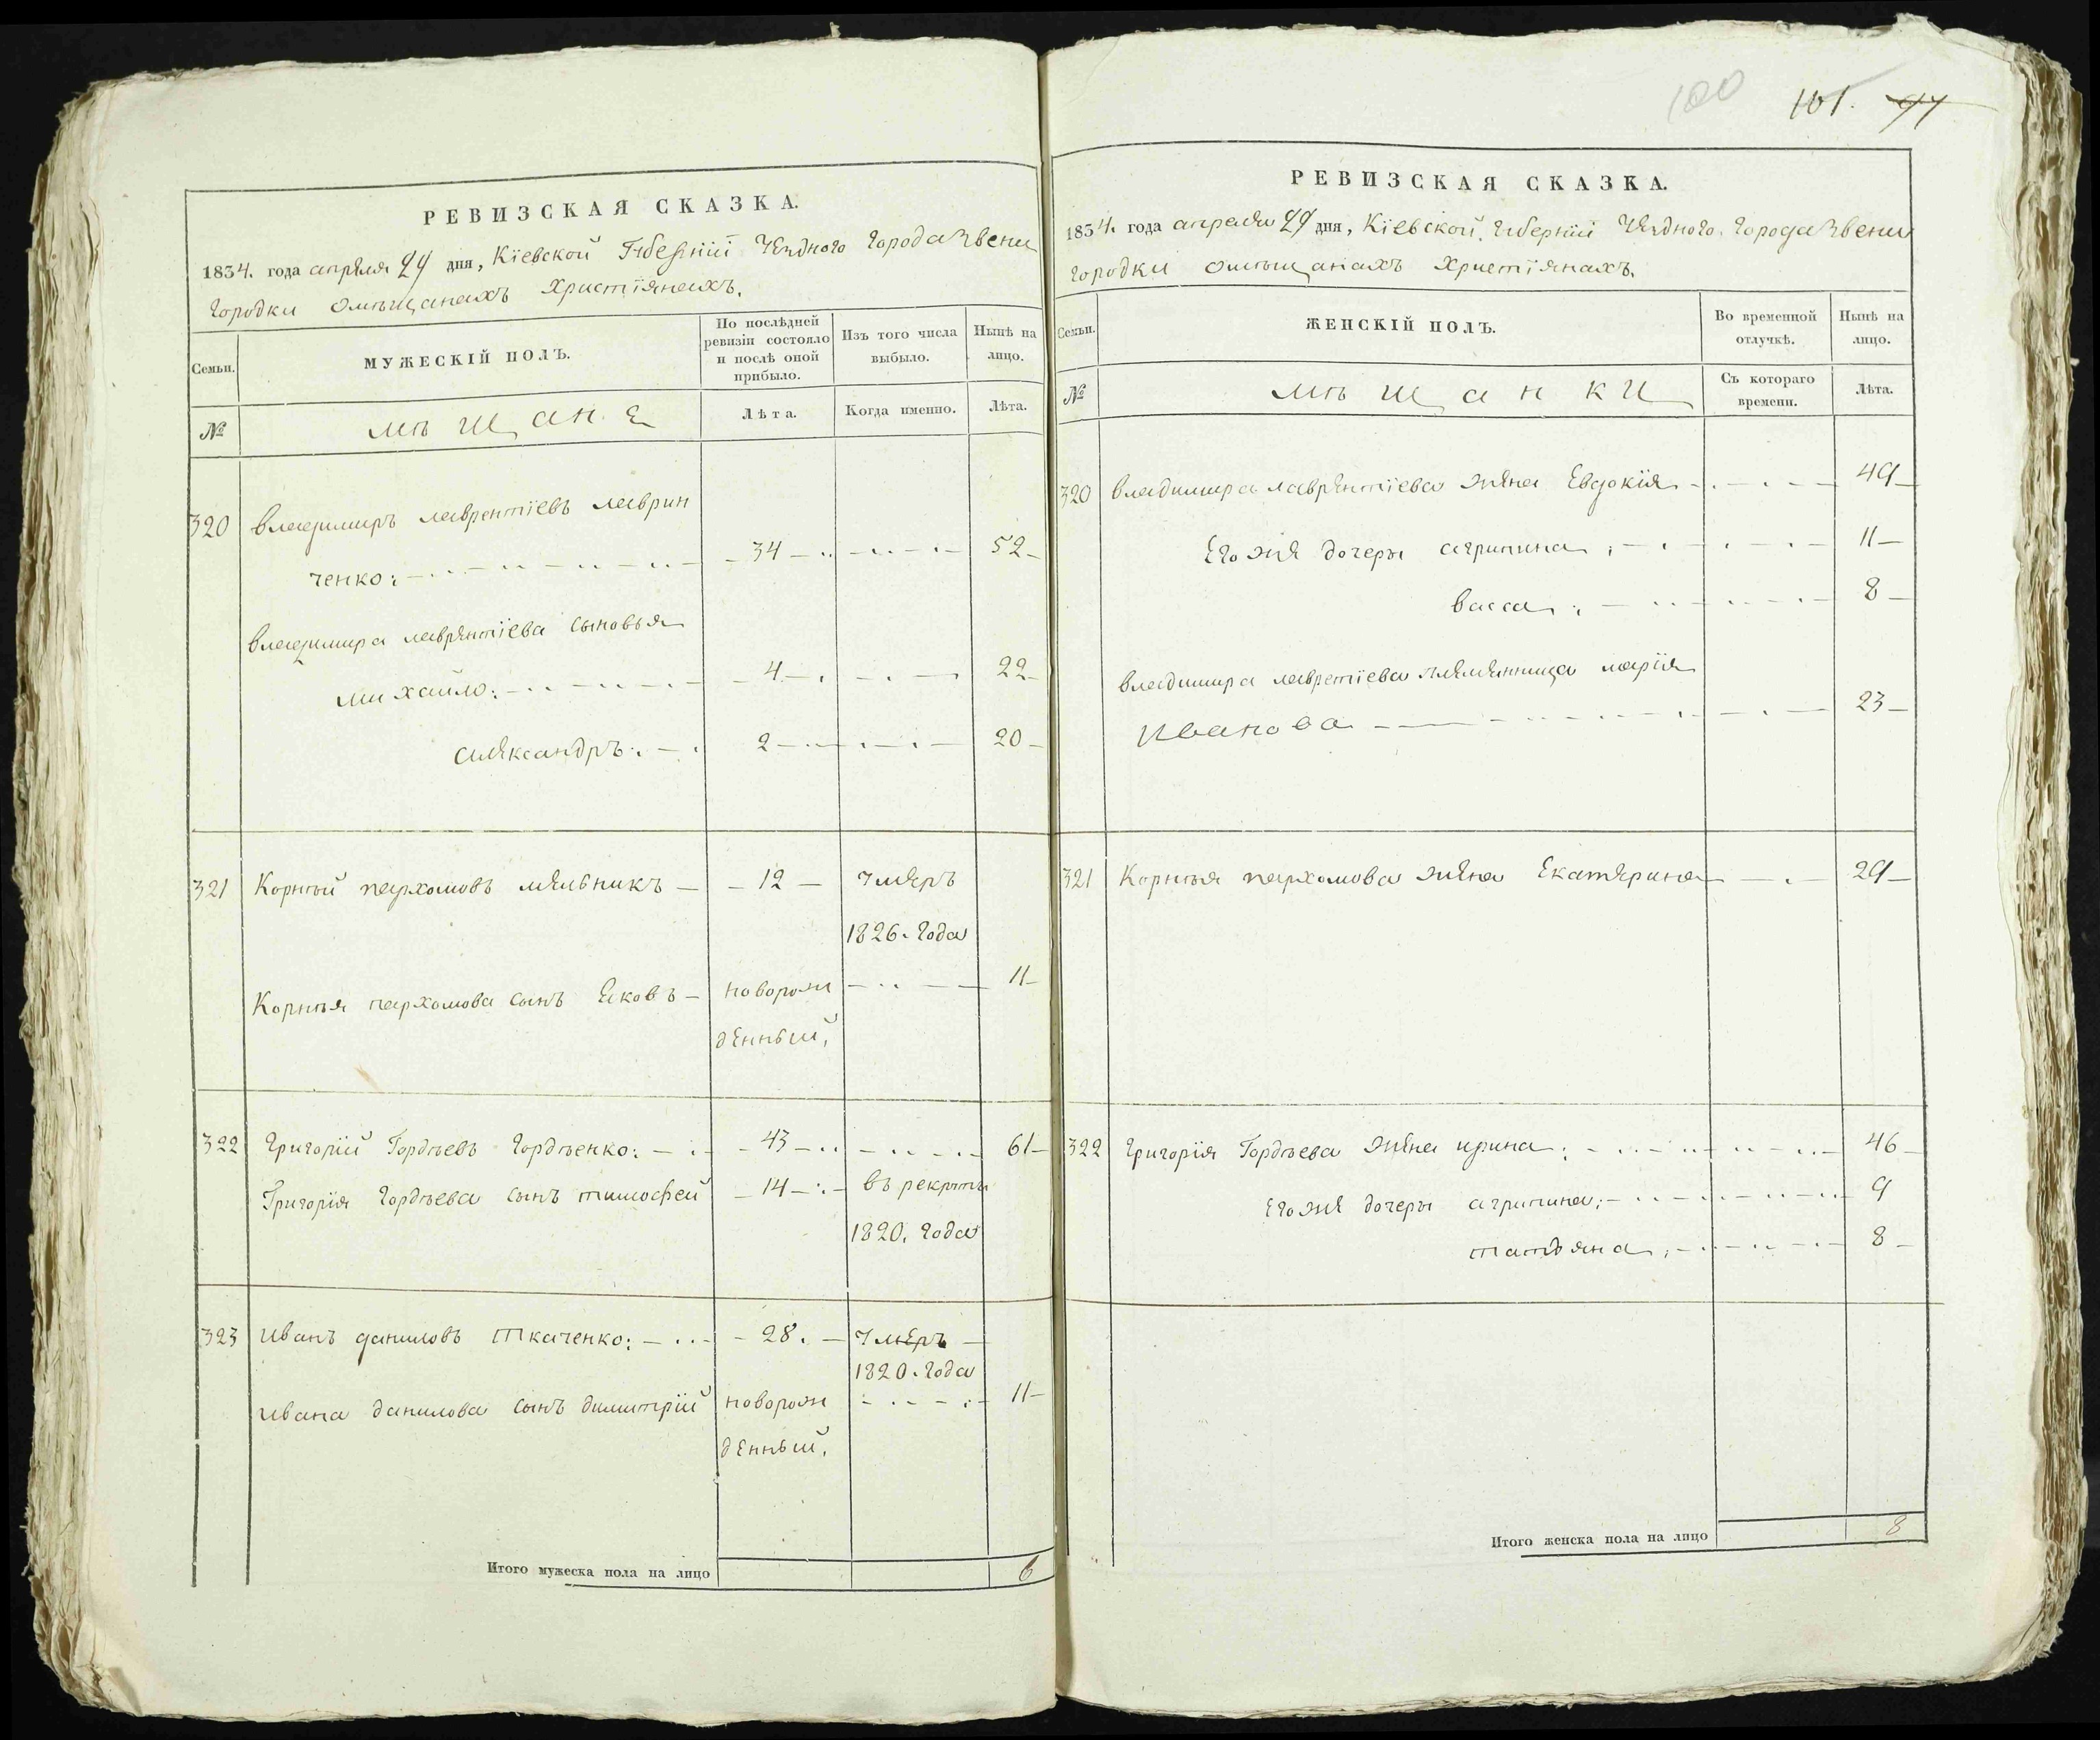 РЕВИЗСКАЯ СКАЗКА.
1834. года апреля 24 дня, Кіевской Губерніи Уезднаго Города Звени
Городки о мѣщанахъ Христіянахъ.
Семьи.
МУЖЕСКІЙ ПОЛЪ.
По послѣдней ревизіи состояло и послѣ оной прибыло.
Изъ того числа выбыло.
Нынѣ на лицо.
№
мѣщане
Лѣта.
Когда именно.
Лѣта.
320 Владимиръ лаврентіевъ лаврин
ченко: 34 52
Владимира лаврентіева сыновья
михайло: 4 22
александръ: 2 20
321 Корнѣй пархомовъ мельникъ 12 умеръ
1826. года
Корнѣя пархомова сынъ Яковъ новорож 11
денный,
322 Григорій Гордѣевъ Гордѣенко: 43 61
Григорія Гордѣева сынъ тимофей 14 въ рекруты
1820. года
323 иванъ даниловъ Ткаченко: 28. умеръ
1820. года
ивана данилова сынъ димитрій новорож 11
денный,
Итого мужеска пола на лицо 6
100 101.
РЕВИЗСКАЯ СКАЗКА.
1834. года апреля 24 дня, Кіевской, Губерніи Уезднаго. Города Звени
городки о мѣщанахъ Христіянахъ.
Семьи.
ЖЕНСКІЙ ПОЛЪ.
Во временной отлучкѣ.
Нынѣ на лицо.
№
мѣщанки
Съ котораго времени.
Лѣта.
320 Владимира лаврентіева жена Евдокія 49
Его же дочеры агрипина, 11
васса, 8
Владимира лавретіева племянница марія
Иванова 23
321 Корнѣя пархомова жена Екатерина 29
322 Григорія Гордѣева жена ирина: 46
Его же дочеры агрипина: 9
татьяна, 8
Итого женска пола на лицо 8